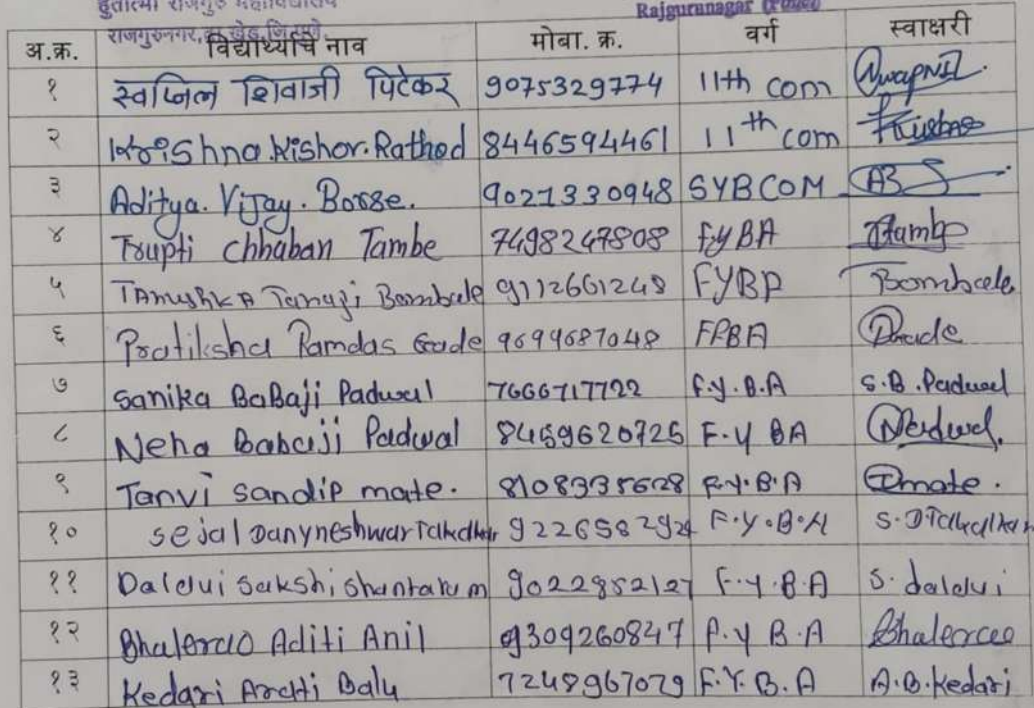 हुतात्मा राजगुरु महाविद्यालय
Rajgurunagar (Pune)
राजगुरुनगर, ता. खेड, जि. पुणे.
अ.क्र. विद्यार्थ्याचे नाव मोबा. क्र. वर्ग स्वाक्षरी
१ स्वप्निल शिवाजी पिटेकर 9075329774 11th com Swapnil.
२ Krishna.Kishor.Rathod 8446594461 11th com Krishna
३ Aditya. Vijay. Borse. 9021330948 SYBCOM AB
४ Trupti chhaban Tambe 7498247808 F.y BA Ttambe
५ TAnushkA Tanaji Bombale 9112661248 FYBA Bombale
६ Pratiksha Ramdas Gade 9699687048 FYBA Pgade
७ Sanika BaBaji Padwal 7666717722 F.y.B.A S.B.Padwal
८ Neha Babaji Padwal 8459620725 F.Y BA Npadwal.
९ Tanvi sandip mate. 8108335628 F.Y.B.A Tmate.
१० sejal Danyneshwar Takalkar 922658292 F.Y.B.A S.D Takalkar
११ Dalvui sakshi shantaram 9022852127 F.Y.B.A S. dalvui
१२ Bhalerao Aditi Anil 9309260847 F.Y B.A Bhalerao
१३ Kedari Aarti Balu 7248967079 F.Y.B.A A.B.Kedari